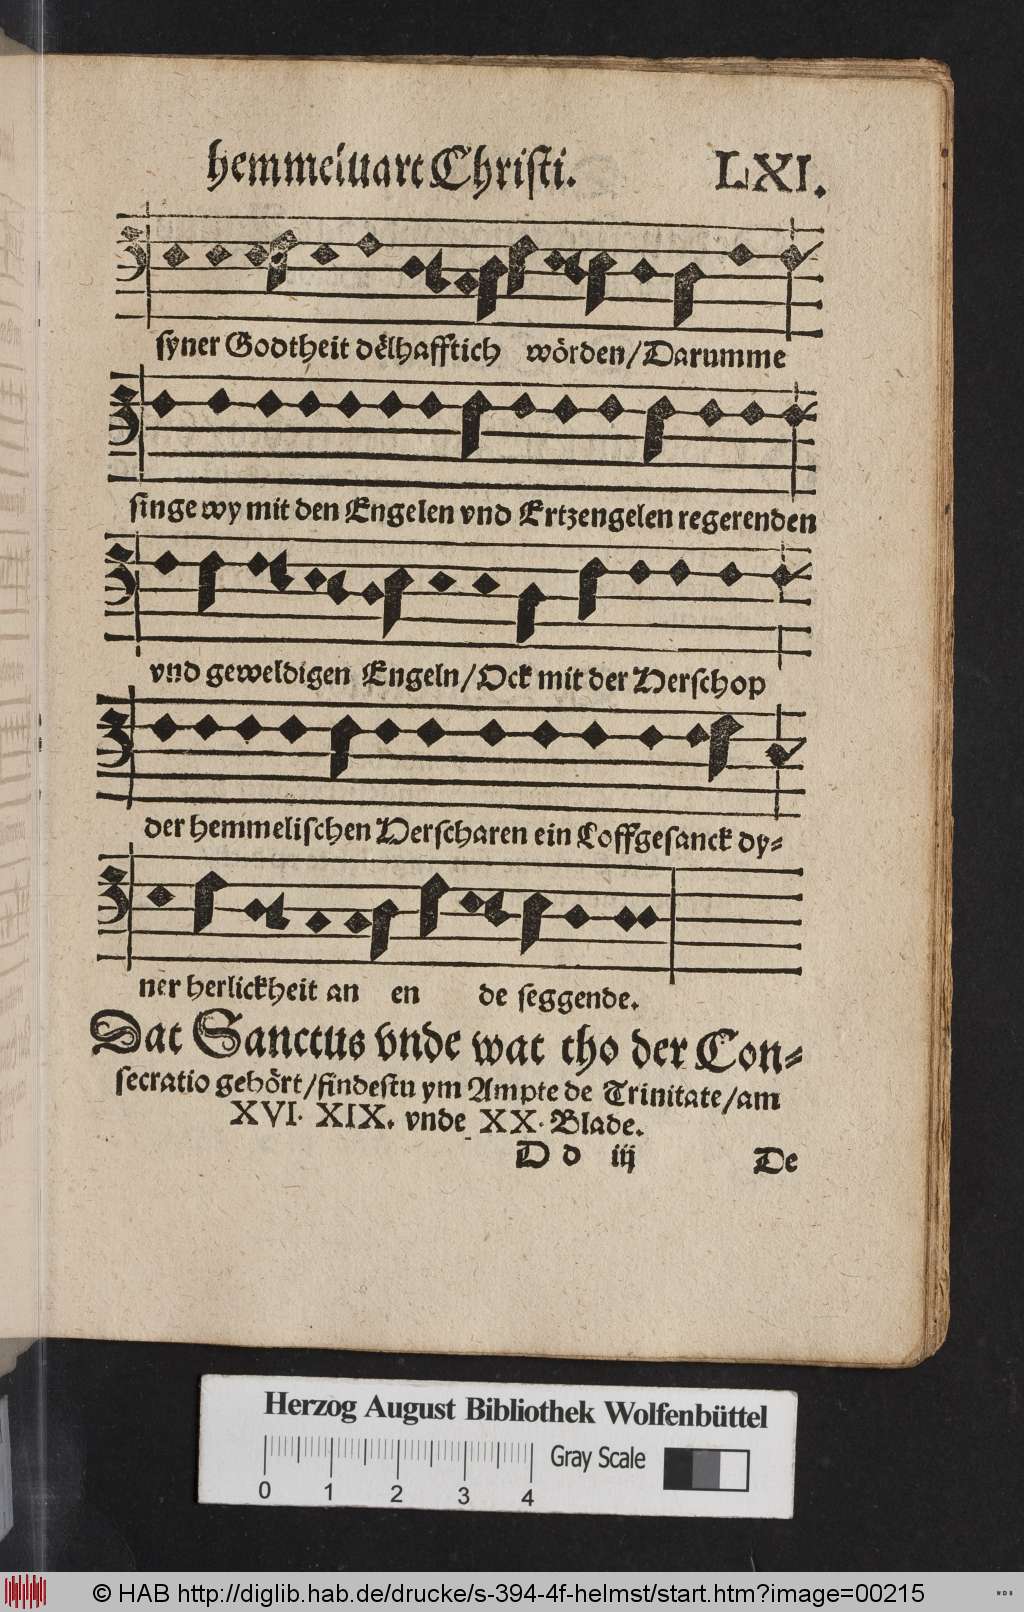 hemmeluart Christi. LXI.
syner Godtheit dêlhafftich wörden/Darumme
singe wy mit den Engelen vnd Ertzengelen regerenden
vnd geweldigen Engeln/Ock mit der Herschop
der hemmelischen Herscharen ein Loffgesanck dy-
ner herlickheit an en de seggende.
Dat Sanctus vnde wat tho der Con-
secratio gehört/findestu ym Ampte de Trinitate/am
XVI. XIX. vnde XX. Blade.
D d iij De
Herzog August Bibliothek Wolfenbüttel
Gray Scale
0 1 2 3 4
© HAB http://diglib.hab.de/drucke/s-394-4f-helmst/start.htm?image=00215